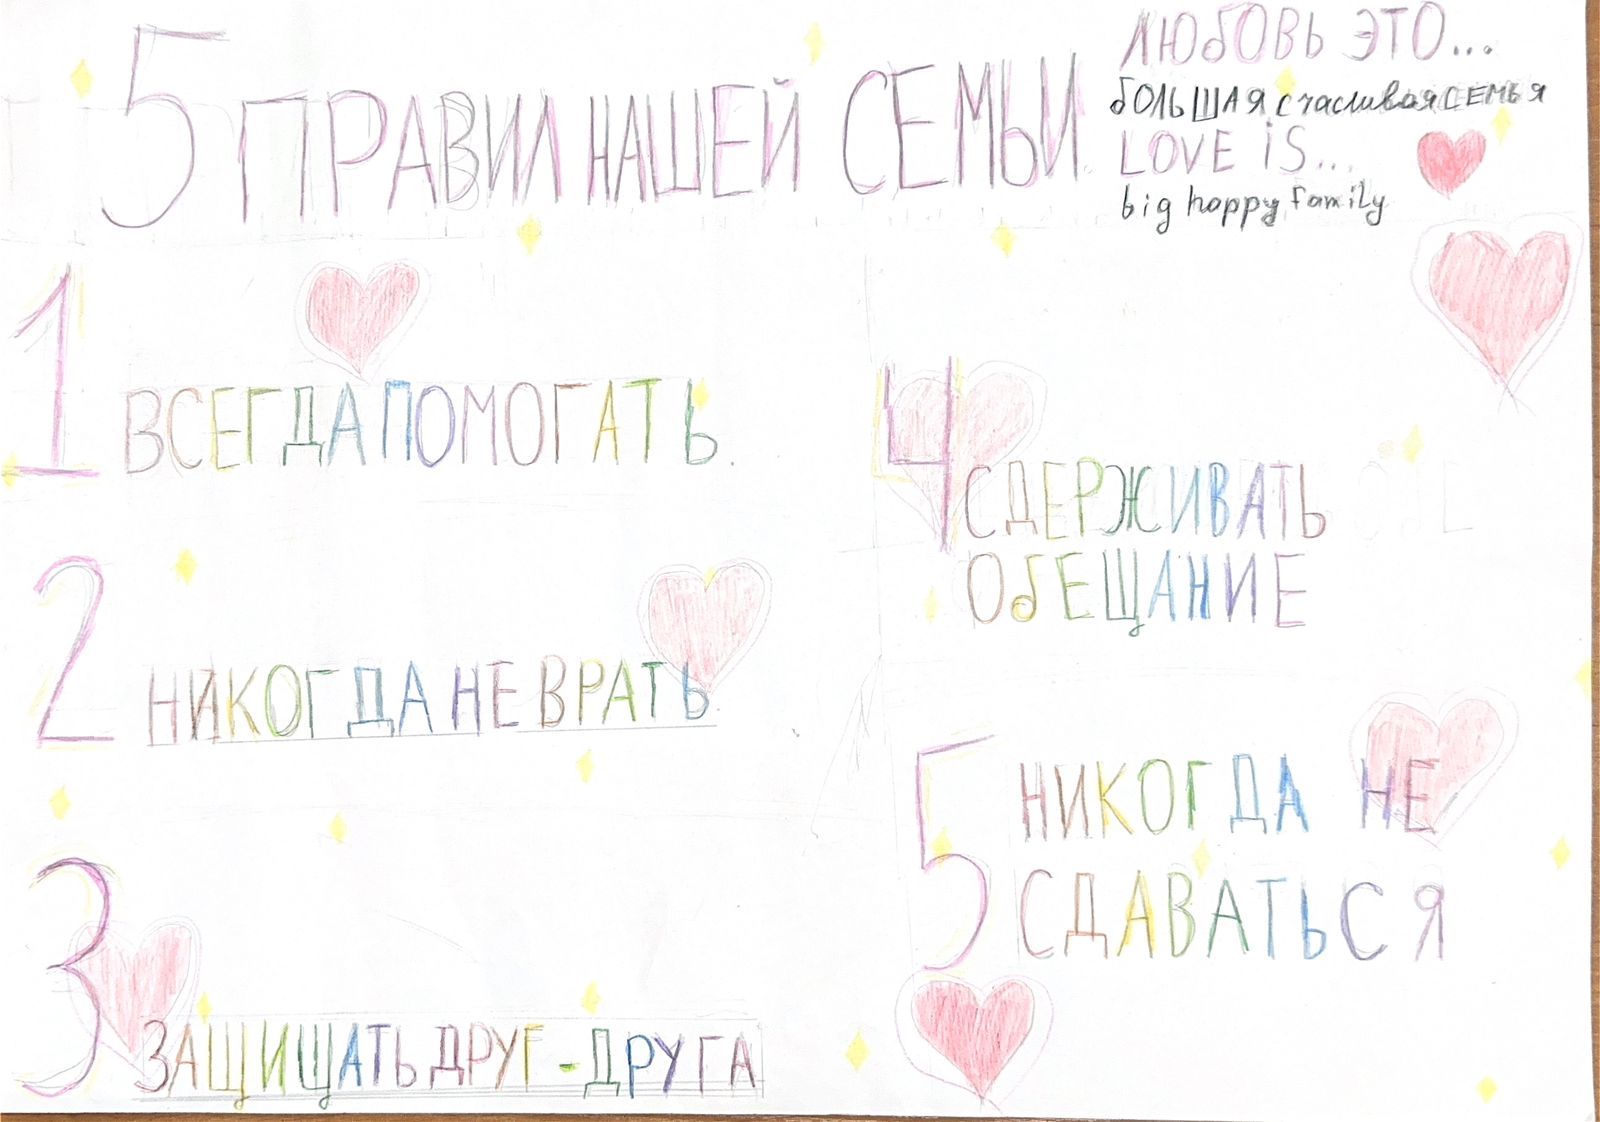 5 ПРАВИЛ НАШЕЙ СЕМЬИ
ЛЮБОВЬ ЭТО...
БОЛЬШАЯ счасливая СЕМЬЯ
LOVE iS...
big happy family
1 ВСЕГДА ПОМОГАТЬ.
2 НИКОГДА НЕ ВРАТЬ.
3 ЗАЩИЩАТЬ ДРУГ-ДРУГА
4 СДЕРЖИВАТЬ
ОБЕЩАНИЕ
5 НИКОГДА НЕ
СДАВАТЬСЯ